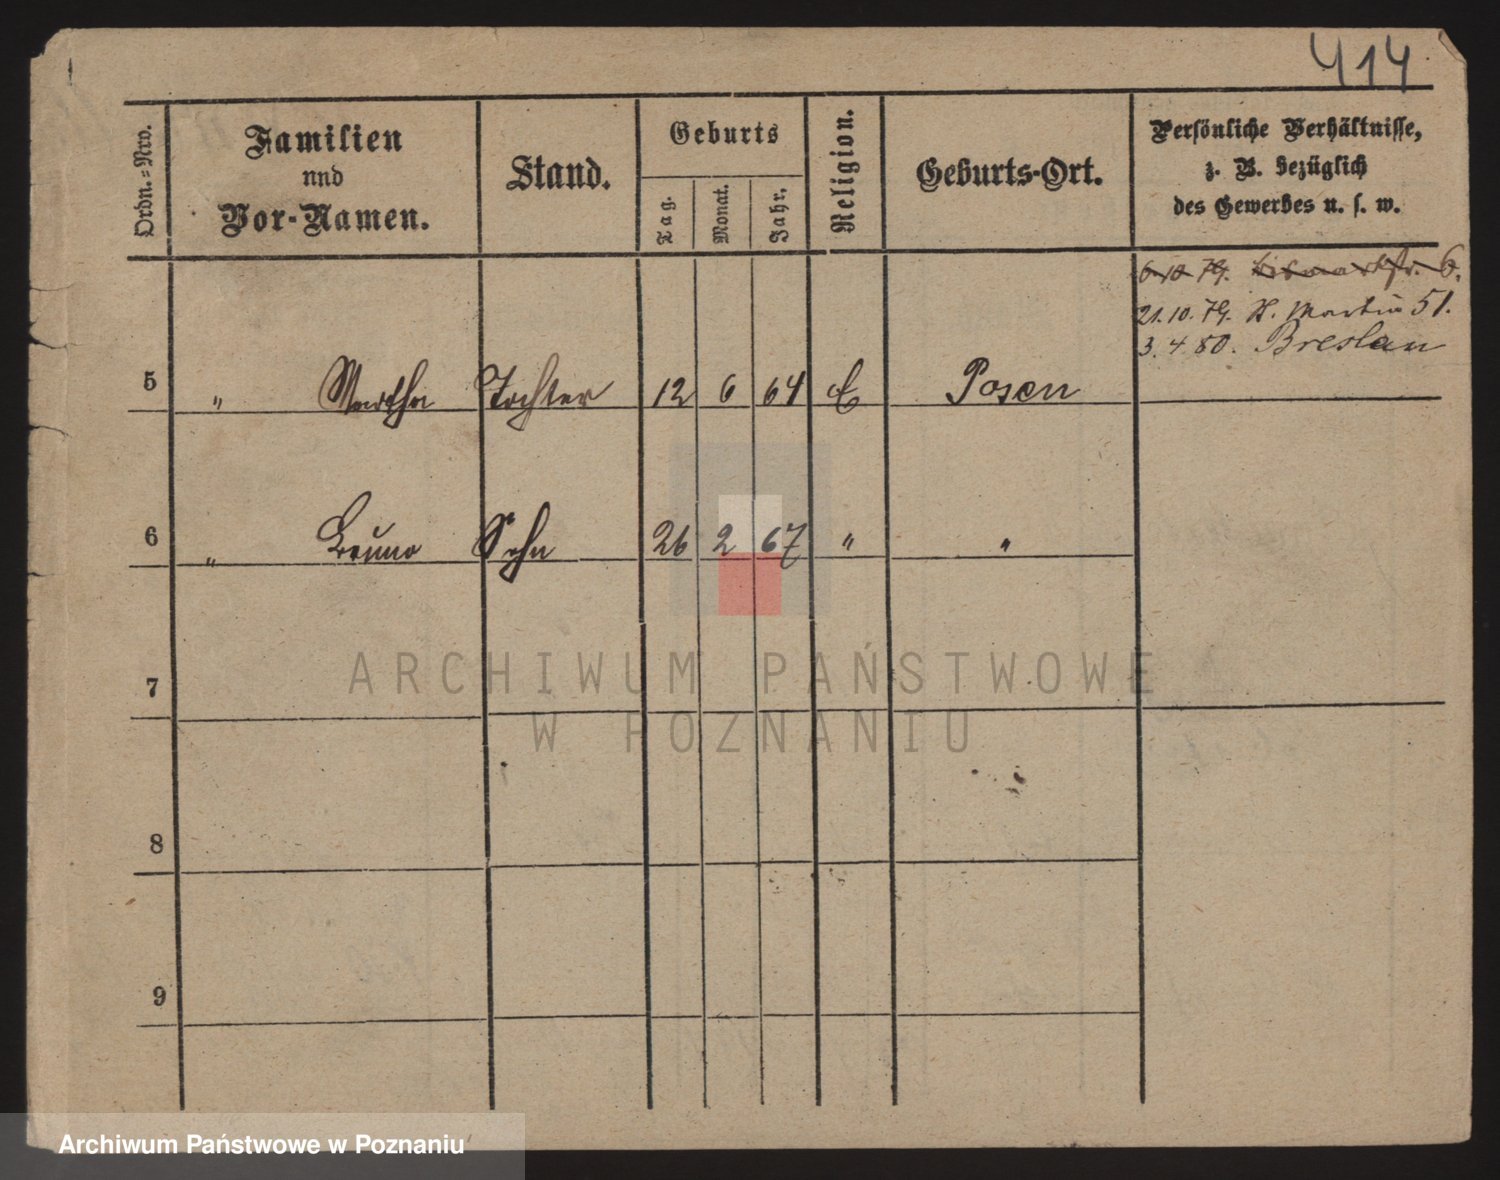 414
Ordn.=Nro.
Familien
und
Vor-Namen.
Stand.
Geburts
Tag.
Monat.
Jahr.
Religion.
Geburts-Ort.
Persönliche Verhältnisse,
z. B. bezüglich
des Gewerbes u. s. w.
6.10 79. Bismarckstr. 6.
21.10.79. St. Martin 51.
3.4.80. Breslau
5 " Martha Tochter 12 6 64 E Posen
6 " Bruno Sohn 26 2 67 " "
7
8
9
ARCHIWUM PAŃSTWOWE
W POZNANIU
Archiwum Państwowe w Poznaniu